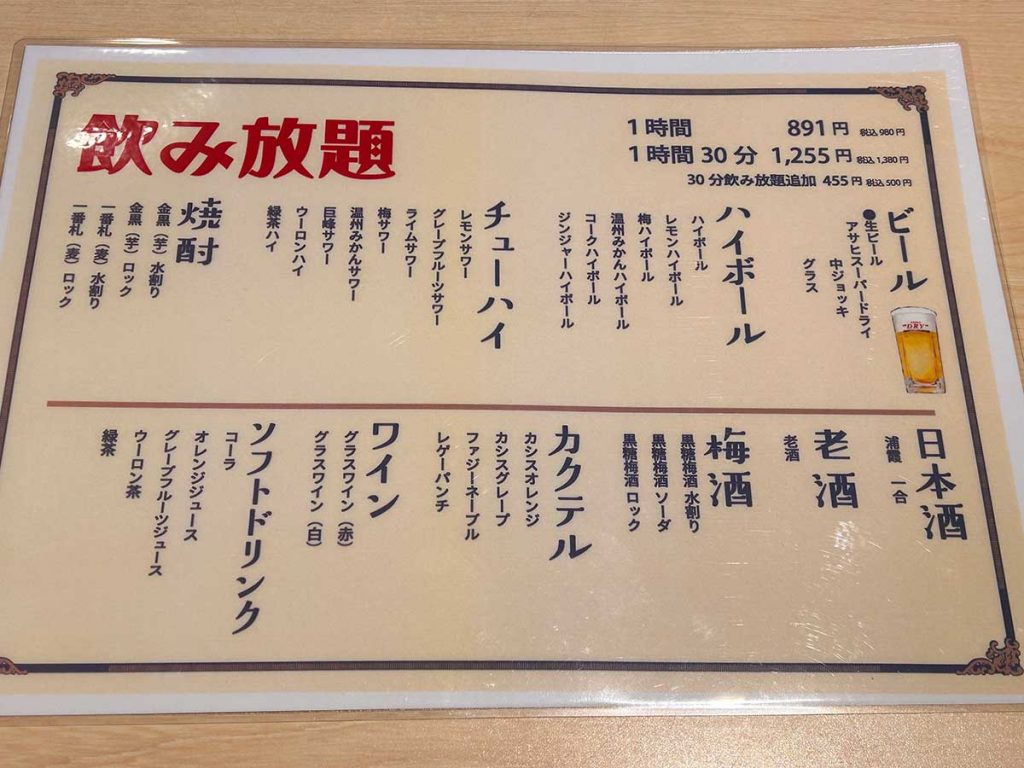 飲み放題
1時間 891円 税込980円
1時間30分 1,255円 税込1,380円
30分飲み放題追加 455円 税込500円
ビール
●生ビール
アサヒスーパードライ
中ジョッキ
グラス
DRY
ハイボール
ハイボール
レモンハイボール
梅ハイボール
温州みかんハイボール
コークハイボール
ジンジャーハイボール
チューハイ
レモンサワー
グレープフルーツサワー
ライムサワー
梅サワー
温州みかんサワー
巨峰サワー
ウーロンハイ
緑茶ハイ
焼酎
金黒(芋)水割り
金黒(芋)ロック
一番札(麦)水割り
一番札(麦)ロック
日本酒
浦霞 一合
老酒
老酒
梅酒
黒糖梅酒 水割り
黒糖梅酒 ソーダ
黒糖梅酒 ロック
カクテル
カシスオレンジ
カシスグレープ
ファジーネーブル
レゲーパンチ
ワイン
グラスワイン(赤)
グラスワイン(白)
ソフトドリンク
コーラ
オレンジジュース
グレープフルーツジュース
ウーロン茶
緑茶